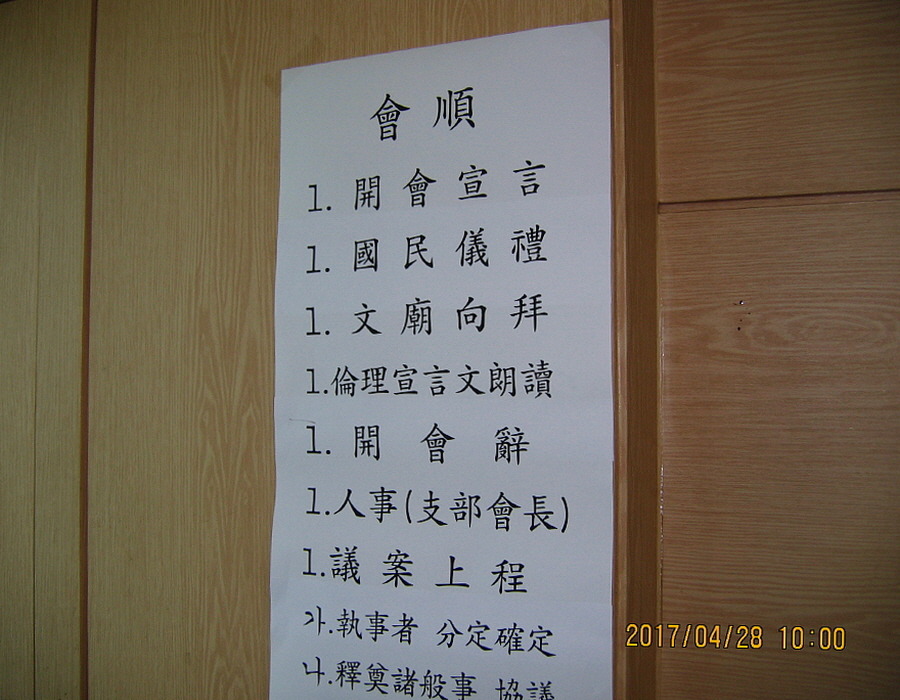 會順
1. 開會宣言
1. 國民儀禮
1. 文廟向拜
1. 倫理宣言文朗讀
1. 開會辭
1. 人事(支部會長)
1. 議案上程
가. 執事者 分定確定
나. 釋奠諸般事 協議
2017/04/28 10:00